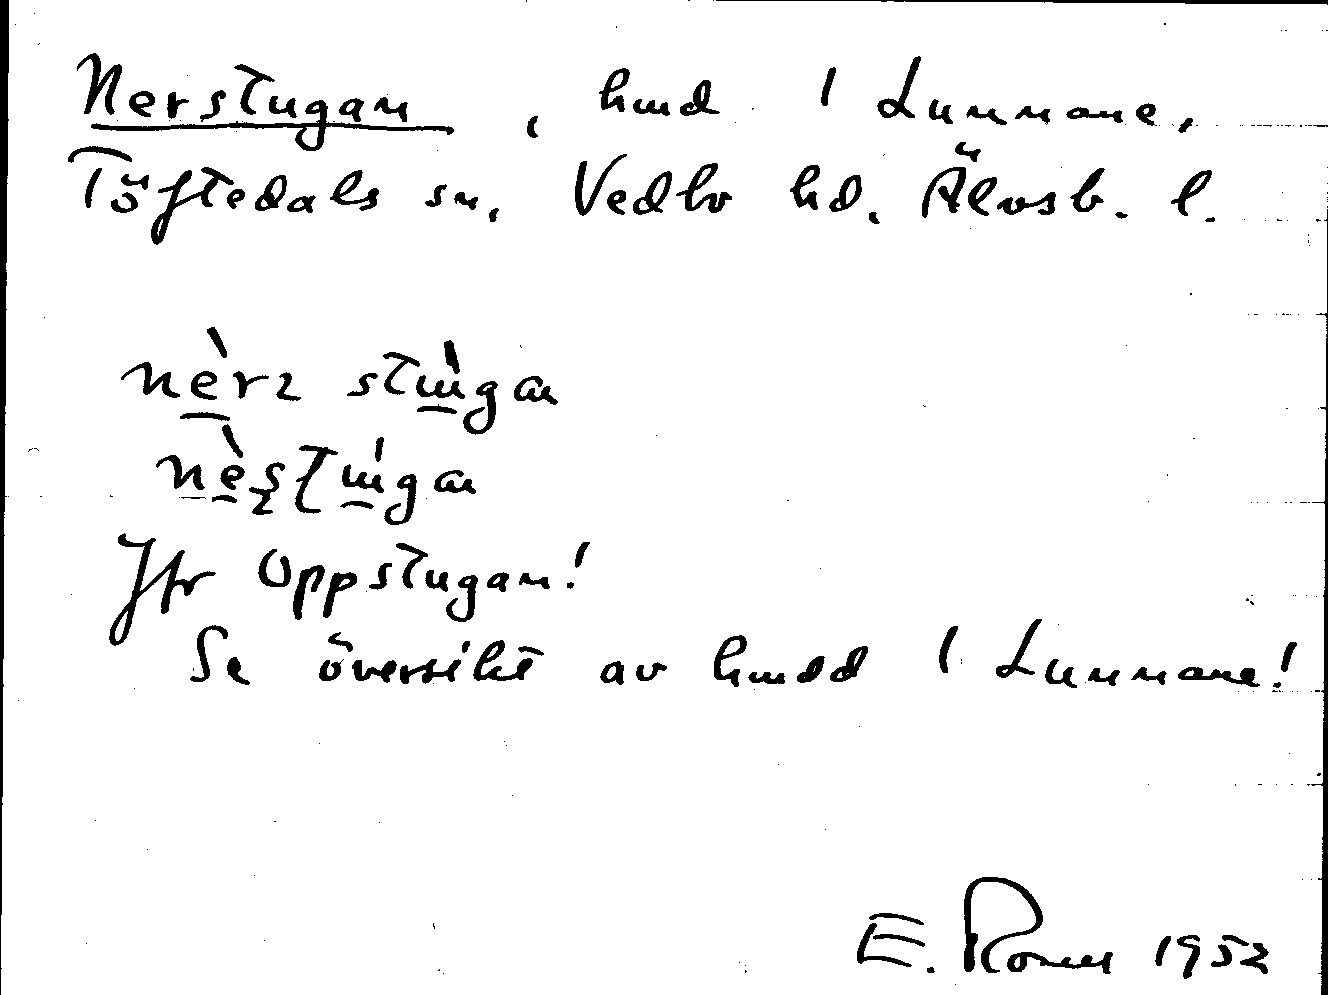 Nerstugan, hmd 1 Lunnane,
Töftedals sn, Vedbo hd. Älvsb. l.
nè̱rz stù̱gan
nè̱ʂʈú̱gan
Jfr Oppstugan!
Se översikt av hmdd 1 Lunnane!
E. 1952